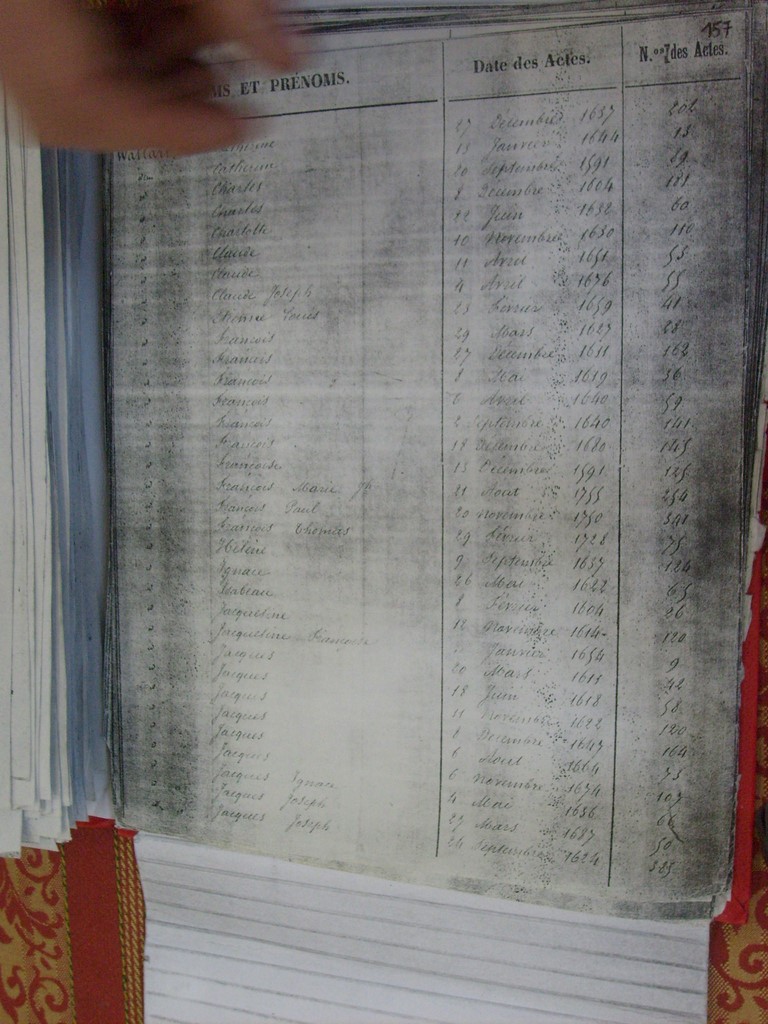 157
MS ET PRÉNOMS. Date des Actes. N.os des Actes.
Catherine 27 Decembre 1637 202
Catherine 13 Janvier 1644 13
Charles 20 Septembre 1591 89
Charles 8 Decembre 1604 113
Charlotte 12 Juin 1632 60
Claude 10 Novembre 1630 110
Claude 11 Avril 1651 55
Claude Joseph 4 Avril 1676 55
Etienne Louis 23 Fevrier 1659 41
François 29 Mars 1627 28
François 27 Decembre 1611 162
François 8 Mai 1619 36
François 6 Avril 1640 59
François 2 Septembre 1640 141
François 18 Decembre 1680 145
Françoise 13 Decembre 1591 125
François Marie Jh 21 Aout 1755 254
François Paul 20 novembre 1750 341
François Thomas 29 Fevrier 1728 75
Hélène 9 Septembre 1637 124
Ignace 26 Mai 1622 65
Isabeau 1 Fevrier 1604 26
Jacqueline 12 Novembre 1614 120
Jacqueline Françoise Janvier 1654 9
Jacques 20 Mars 1611 42
Jacques 18 Juin 1618 58
Jacques 11 novembre 1622 120
Jacques 6 Decembre 1647 164
Jacques 6 Aout 1664 75
Jacques 6 novembre 1674 107
Jacques Ignace 4 Mai 1656 66
Jacques Joseph 27 Mars 1687 50
Jacques Joseph 24 Septembre 1624 323